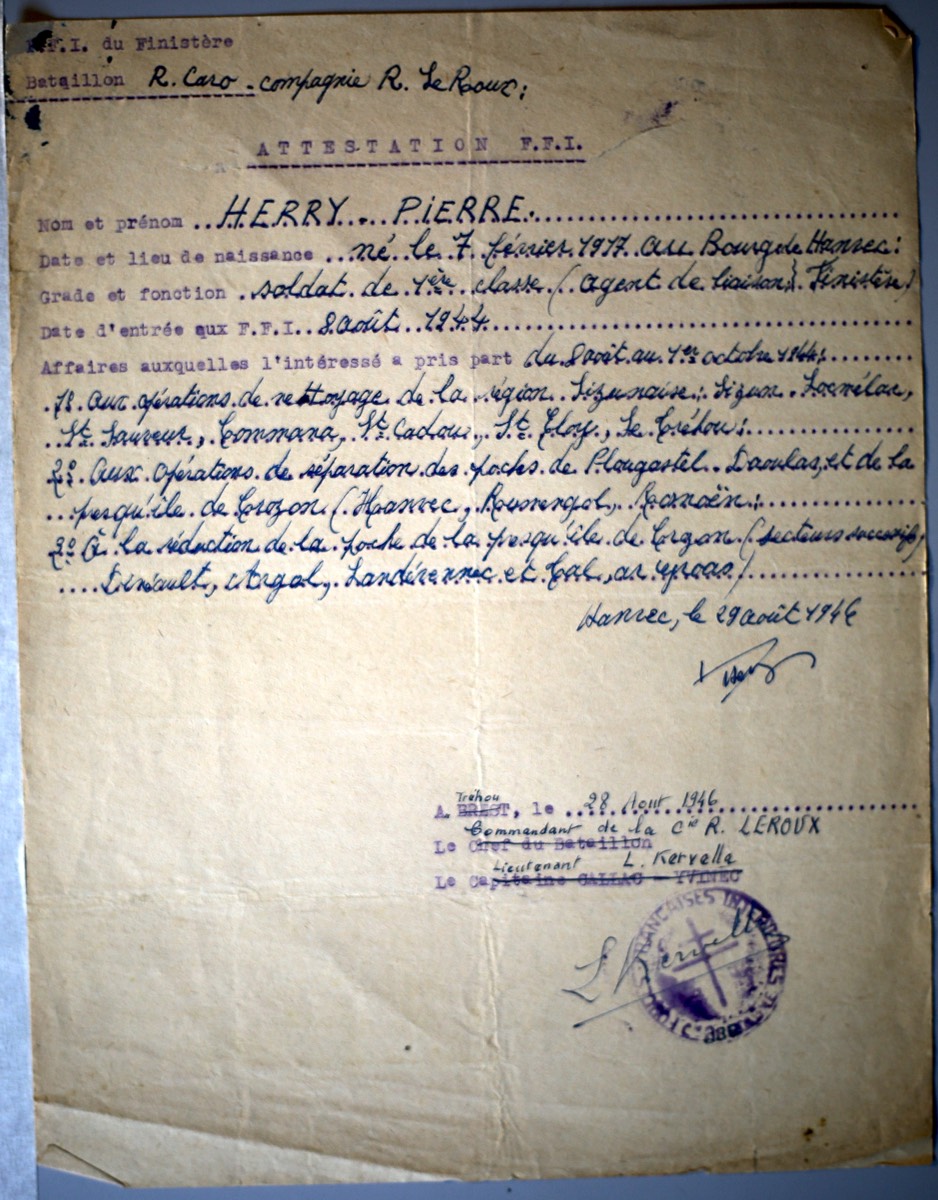 F.F.I. du Finistère
Bataillon R. Caro - compagnie R. Le Roux:
ATTESTATION F.F.I.
Nom et prénom ..HERRY... PIERRE:
Date et lieu de naissance ...né le 7 février 1917 au Bourg de Hanvec:
Grade et fonction .soldat de 1ère classe (agent de liaison) Finistère)
Date d'entrée aux F.F.I. .8 août 1944.
Affaires auxquelles l'intéressé a pris part du 8 août au 1er octobre 1944:
1º aux opérations de nettoyage de la région Sizunaise: Sizun, Locmélar,
St Sauveur, Commana, St Cadou, St Eloy, Le Tréhou:
2º Aux opérations de séparation des poches de Plougastel-Daoulas, et de la
presqu'île de Crozon (Hanvec, Rumengol, Rosnoën:
3º À la réduction de la poche de la presqu'île de Crozon (secteurs successifs)
Dinéault, Argol, Landévennec et
Hanvec, le 29 août 1946
Tréhou
A. BREST, le 28 Aout 1946
Commandant de la Cie R. LEROUX
Le Chef du Bataillon
Lieutenant L. Kervella
Le Capitaine GALLAC - YVINEC
L Kervella
FORCES FRANÇAISES INTERIEURES